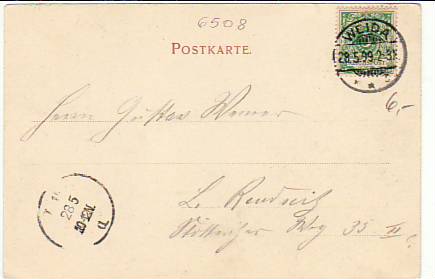 6508
POSTKARTE.
WEIDA
28.5.99. 2-3N
6,-
Herrn Gustav Werner
L. Reudnitz
Stötteritzer Weg 35 III
28 5
10-12V.
d.